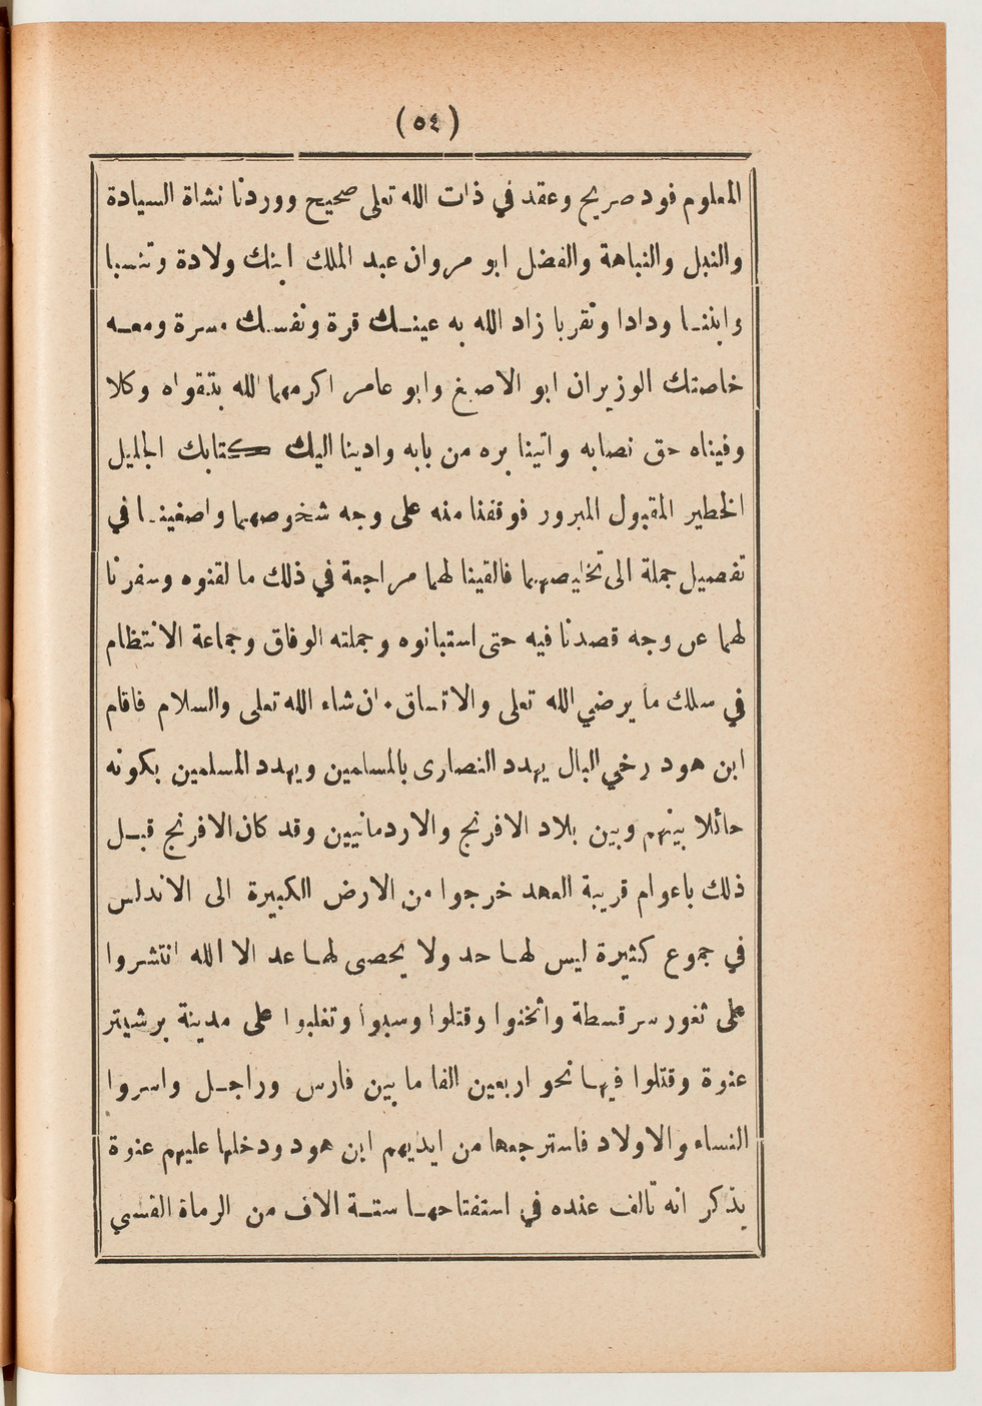 (٥٤)
المعلوم فود صريح وعقد في ذات الله تعلى صحيح ووردنا نشاة السيادة
والنبل والنباهة والفضل ابو مروان عبد الملك ابنك ولادة وتنسبا
وابننا ودادا وتقربا زاد الله به عينك قرة ونفسك مسرة ومعه
خاصتك الوزيران ابو الاصبغ وابو عامر اكرمهما الله بتقواه وكلا
وفيناه حق نصابه واتينا بره من بابه وادينا اليك كتابك الجليل
الخطير المقبول المبرور فوقفنا منه على وجه شخوصهما واصغينا في
تفصيل جملة الى تخليصهما فالقينا لهما مراجعة في ذلك ما لقنوه وسفرنا
لهما عن وجه قصدنا فيه حتى استبانوه وجملته الوفاق وجماعة الانتظام
في سلك ما يرضي الله تعلى والاتساق. ان شاء الله تعلى والسلام فاقام
ابن هود رخي البال يهدد النصارى بالمسلمين ويهدد المسلمين بكونه
حائلا بينهم وبين بلاد الافرنج والاردمانيين وقد كان الافرنج قبل
ذلك باعوام قريبة العهد خرجوا من الارض الكبيرة الى الاندلس
في جموع كثيرة ليس لها حد ولا يحصى لها عد الا الله انتشروا
على ثغور سرقسطة واثخنوا وقتلوا وسبوا وتغلبوا على مدينة برشيتر
عنوة وقتلوا فيها نحو اربعين الفا ما بين فارس وراجل واسروا
النساء والاولاد فاسترجعها من ايديهم ابن هود ودخلها عليهم عنوة
يذكر انه تالف عنده في استفتاحها ستة الاف من الرماة القسي